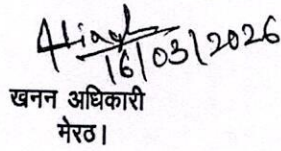 16/03/2026
खनन अधिकारी
मेरठ।